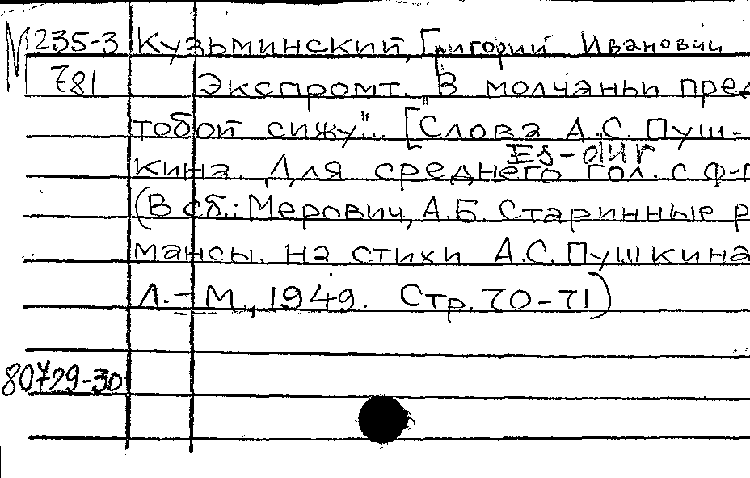 М 235-3 Кузьминский, Григорий Иванович
781 Экспромт. "В молчаньи пред
тобой сижу"... ["Слова А.С. Пуш-
Es-dur
кина. Для среднего гол. с ф-п
(В сб.: Мерович, А.Б. Старинные р
мансы на стихи А.С. Пушкина
Л.-М., 1949. Стр. 70-71)
80729-30